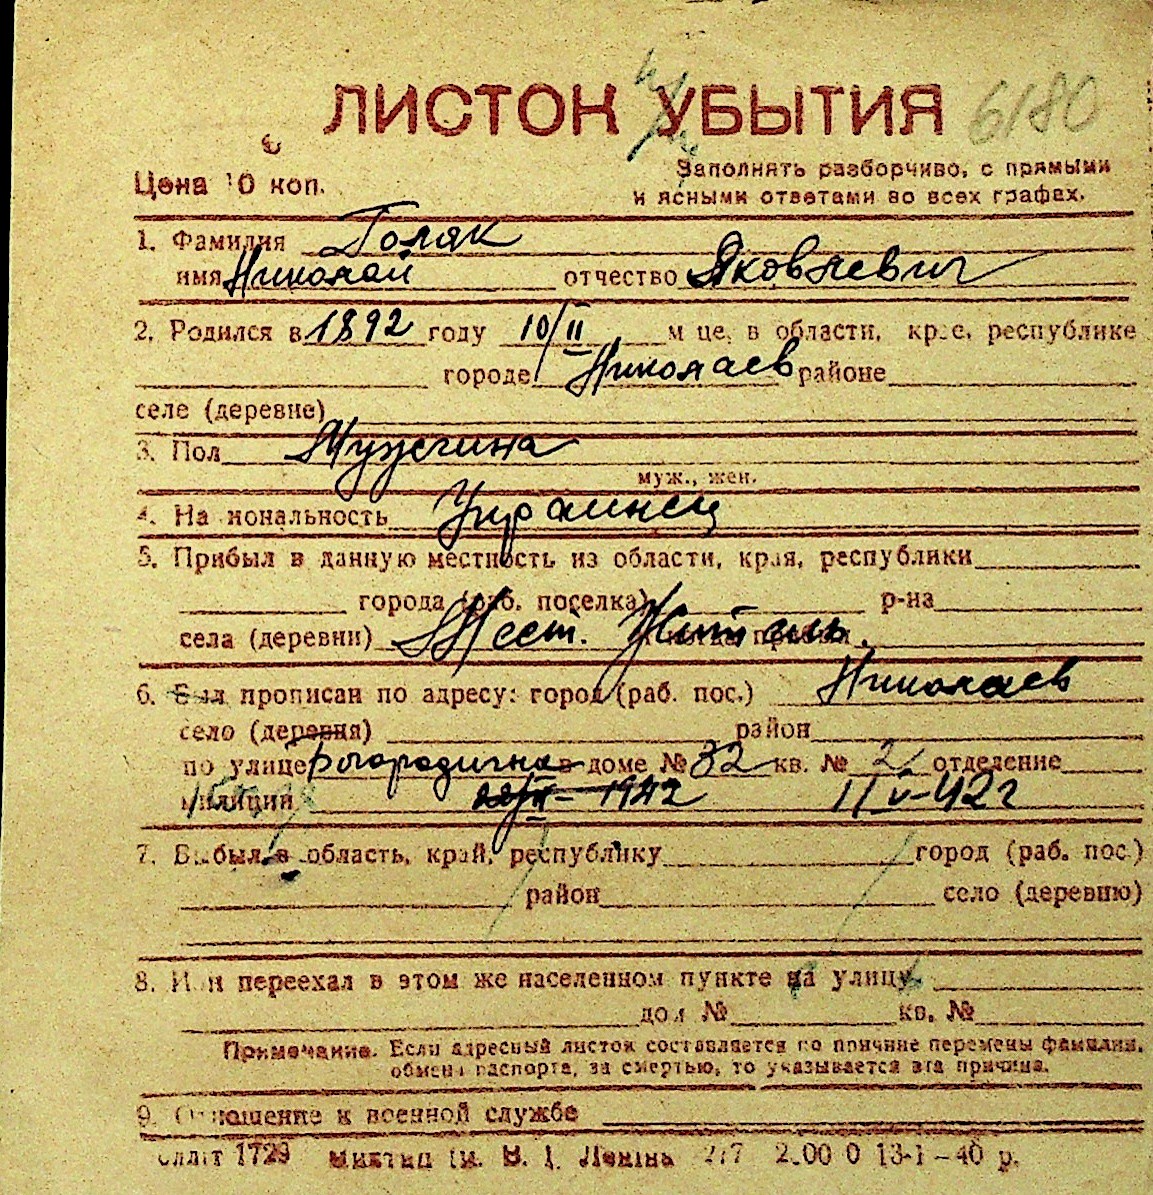 ЛИСТОК УБЫТИЯ 6180
Цена 10 коп.
Заполнять разборчиво, с прямыми
и ясными ответами во всех графах.
1. Фамилия Голяк
имя Николай отчество Яковлевич
2. Родился в 1892 году 10/II м це, в области, крае, республике
городе Николаев районе
селе (деревне)
3. Пол Мужчина
муж., жен.
4. Национальность Украинец
5. Прибыл в данную местность из области, края, республики
города (раб. поселка) р-на
села (деревни) Мест. Житель
6. Был прописан по адресу: город (раб. пос.) Николаев
село (деревня) район
по улице в доме № 32 кв. № 2 отделение
милиции 1942 1/V-42 г
7. Выбыл в область, край, республику город (раб. пос.)
район село (деревню)
8. Или переехал в этом же населенном пункте на улицу
дом № кв. №
Примечание. Если адресный листок составляется по причине перемены фамилии,
обмена паспорта, за смертью, то указывается эта причина.
9. Отношение к военной службе
1729 ім. В. І. Леніна 13-I-40 р.